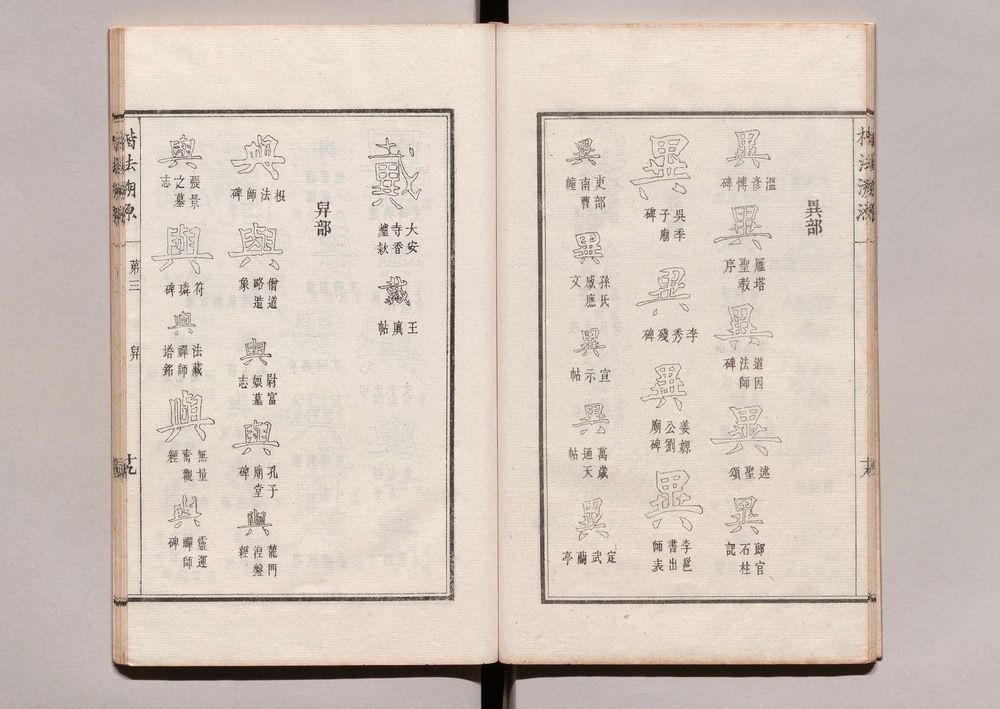 異部
異
溫彥博碑
異
雁塔聖教序
異
道因法師碑
異
述聖頌
異
郎官石柱記
異
吳季子廟碑
異
李秀殘碑
異
姜嫄公劉廟碑
異
李邕書出師表
異
吏部南曹幢
異
孫氏感應文
異
宣示帖
異
萬歲通天帖
異
定武蘭亭
戴
大安寺香爐款
戴
王廙帖
舁部
與
根法師碑
與
僧道略造象
與
尉富娘墓志
與
孔子廟堂碑
與
龍門涅槃經
與
張景之墓志
與
符璘碑
與
法藏禪師塔銘
與
無量壽觀經
與
靈運禪師碑
楷法溯原
第三
舁
十九